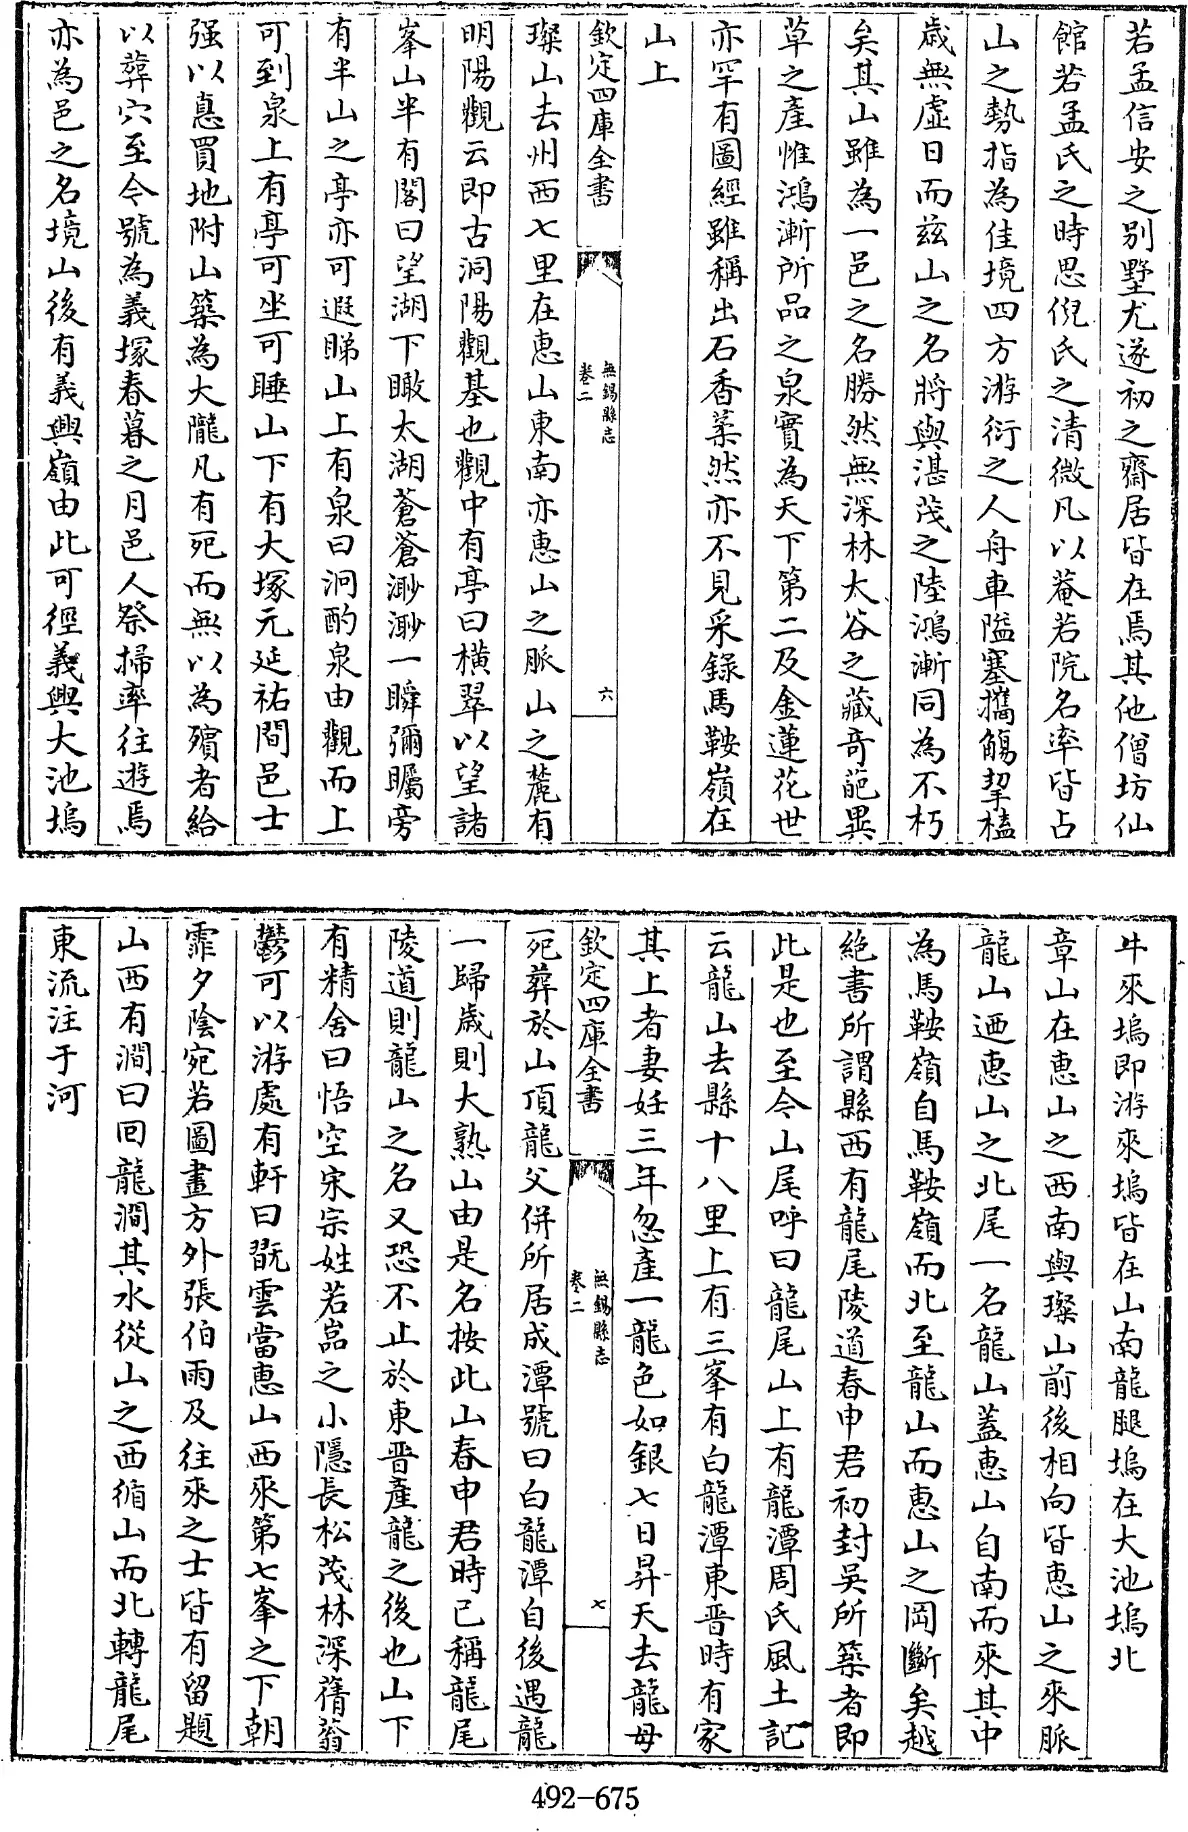 若孟信安之别墅尤遂初之齋居皆在焉其他僧坊仙
館若孟氏之時思倪氏之清微凡以菴若院名率皆占
山之勢指為佳境四方游衍之人舟車隘塞攜觴挈榼
歲無虛日而兹山之名將與湛茂之陸鴻漸同為不朽
矣其山雖為一邑之名勝然無深林大谷之藏竒葩異
草之產惟鴻漸所品之泉實為天下第二及金蓮花世
亦罕有圖經雖稱出石香葇然亦不見采錄馬鞍嶺在
山上
欽定四庫全書
無錫縣志
卷二
六
璨山去州西七里在惠山東南亦惠山之脈山之麓有
明陽觀云即古洞陽觀基也觀中有亭曰横翠以望諸
峯山半有閣曰望湖下瞰太湖蒼蒼渺渺一瞬彌矚旁
有半山之亭亦可遐睇山上有泉曰泂酌泉由觀而上
可到泉上有亭可坐可睡山下有大塚元延祐間邑士
强以悳買地附山築為大隴凡有死而無以為殯者給
以葬穴至今號為義塚春暮之月邑人祭掃率往遊焉
亦為邑之名境山後有義興嶺由此可徑義興大池塢
牛來塢即游來塢皆在山南龍腿塢在大池塢北
章山在惠山之西南與璨山前後相向皆惠山之來脈
龍山迺惠山之北尾一名龍山蓋惠山自南而來其中
為馬鞍嶺自馬鞍嶺而北至龍山而惠山之岡斷矣越
絶書所謂縣西有龍尾陵道春申君初封吳所築者即
此是也至今山尾呼曰龍尾山上有龍潭周氏風土記
云龍山去縣十八里上有三峯有白龍潭東晉時有家
其上者妻妊三年忽產一龍色如銀七日昇天去龍母
欽定四庫全書
無錫縣志
卷二
七
死葬於山頂龍父併所居成潭號曰白龍潭自後遇龍
一歸歲則大熟山由是名按此山春申君時已稱龍尾
陵道則龍山之名又恐不止於東晉產龍之後也山下
有精舍曰悟空宋宗姓若嵓之小隱長松茂林深蒨蓊
鬱可以游處有軒曰翫雲當惠山西來第七峯之下朝
霏夕陰宛若圖畫方外張伯雨及往來之士皆有留題
山西有澗曰囘龍澗其水從山之西循山而北轉龍尾
東流注于河
492-675